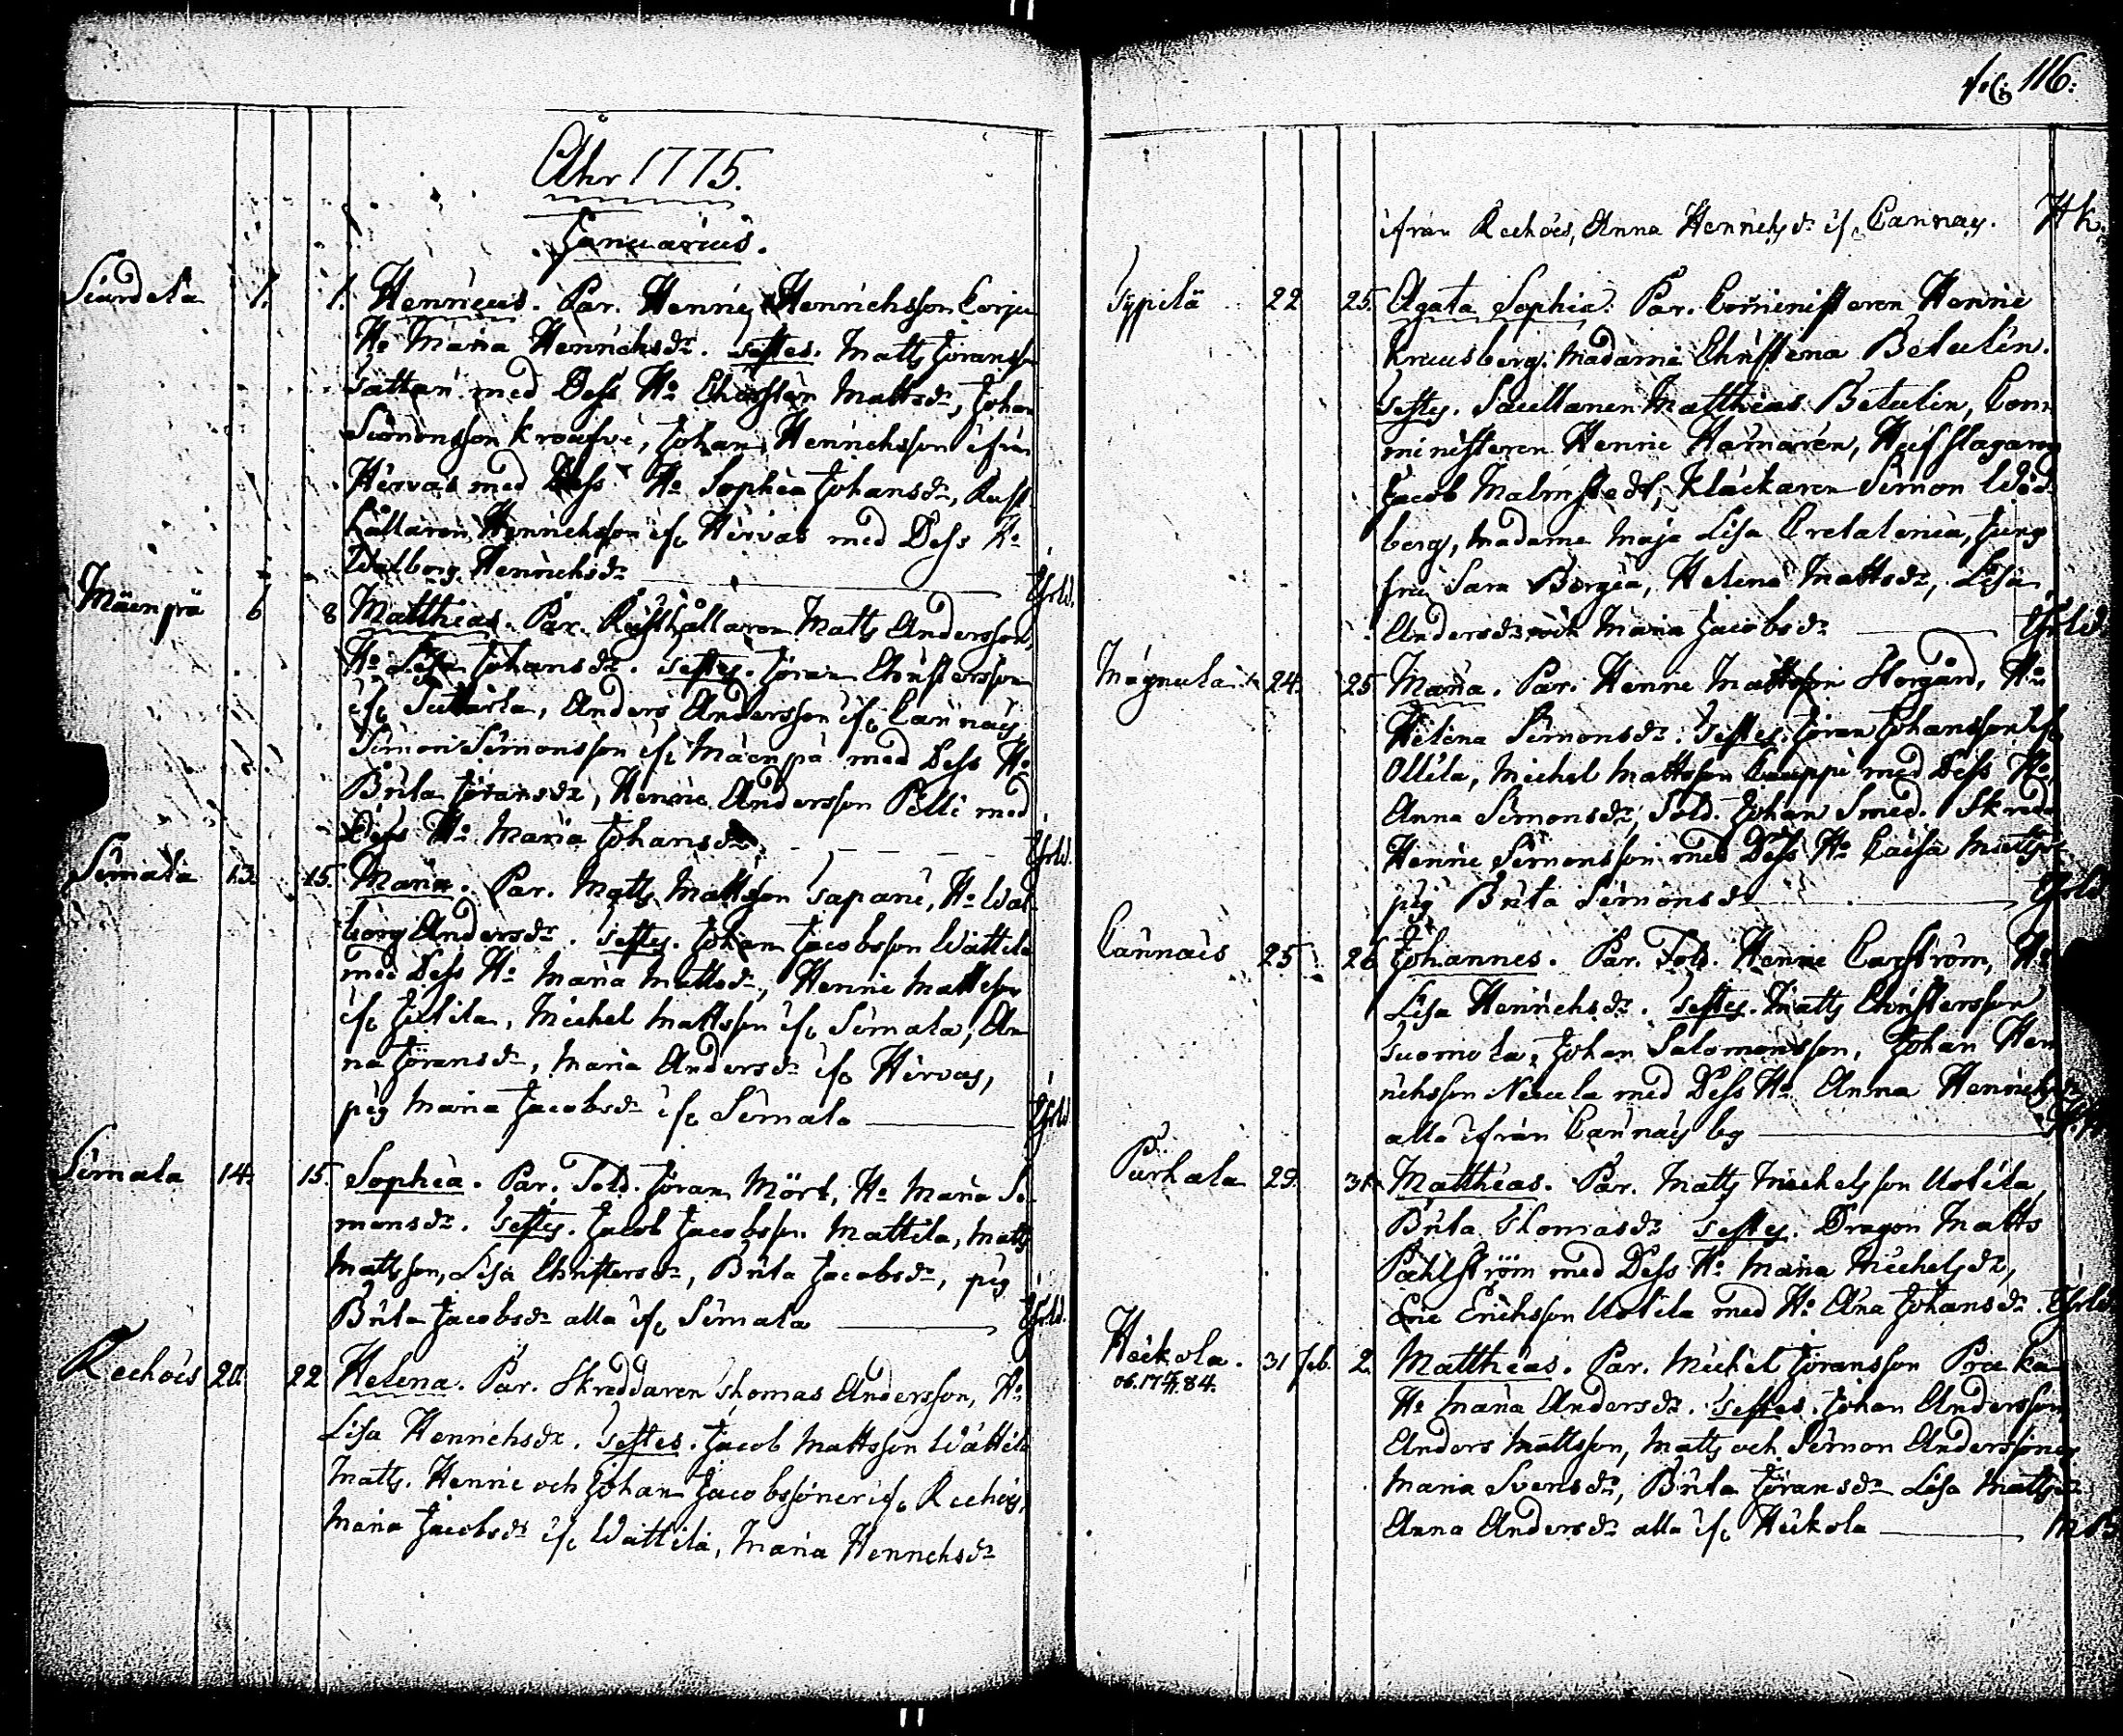 fol: 116:
Åhr 1775.
Januarius.
Siurdela 1. 1. Henricus. Par. Henric Henrichsson Corju
Ho Maria Henrichsdr. Testes. Matts Jöransson
Sattari med Dess Ho Christin Mattsdr, Johan
Simonsson Kroufvi, Johan Henrichsson ifrån
Hirvas med Dess Ho Sophia Johansdr, Rust
hållaren Henrichsson if. Hirvas med Dess Ho
Walborg Henrichsdr
Mäenpä 6 8 Matthias. Par. Rusthållaren Matts Andersson,
Ho Lisa Johansdr. Testes. Jöran Christersson
if. Suttarla, Anders Andersson if. Cannais,
Simon Simonsson if. Mäenpä med Dess Ho
Brita Jöransdr, Henric Andersson Pelli med
Dess Ho Maria Johansdr
Simala 13. 15. Maria. Par. Matts Mattsson Tapani, Ho Wal
borg Andersdr. Testes. Johan Jacobsson Wattila
med Dess Ho Maria Mattsdr, Henric Mattsson
if. Jutila, Michel Mattsson if. Simala, An
na Jöransdr, Maria Andersdr if. Hirvas,
pig Maria Jacobsdr if. Simala
Simala 14. 15. Sophia. Par. Sold. Jöran Mört, Ho Maria Si
monsdr. Testes. Jacob Jacobsson Mattila, Matts
Mattsson, Lisa Christersdr, Brita Jacobsdr, pig
Brita Jacobsdr alla if. Simala
Reehois 20. 22 Helena. Par. Skreddaren Thomas Andersson, Ho
Lisa Henrichsdr. Testes. Jacob Mattsson Wättilä
Matts. Henric och Johan Jacobssöner if. Reehois,
Maria Jacobsdr if. Wättilä, Maria Henrichsdr
ifrån Reehois, Anna Henrichsdr if. Cannais. HK.
Sypilä 22 25. Agata Sophia. Par. Comministeren Henric
Kruusberg. Madame Christina Betulin.
Testes. Matthias Betulin, Com
ministeren Henric Hamarén, Hofslagaren
Jacob Malmstedt, Klåckaren Simon Wid
berg, Madame Maja Lisa Cretalenia, Jung
fru Sara Borgia, Helena Mattsdr, Lisa
Andersdr och Maria Jacobsdr
Magnula 24. 25 Maria. Par. Henric Mattsson Storgård, Ho
Helena Simonsdr. Testes. Jöran Johansson if.
Ollila, Michel Mattsson Cauppi med Dess Ho
Anna Simonsdr, Sold. Johan Smed. Skredd
Henric Simonsson med Dess Ho Caisa Mattsdr
pig Brita Simonsdr
Cannais 25 26 Johannes. Par. Sold. Henric Carström, Ho
Lisa Henrichsdr. Testes. Matts Christersson
Suomela, Johan Salomonsson, Johan Hen
richsson Neuula med Dess Ho Anna Henrichsdr
alla ifrån Cannais by
Purhala 29. 31. Matthias. Par. Matts Michelsson Uotila,
Brita Thomasdr Testes. Dragon Matts
Påhlström med Dess Ho Maria Michelsdr,
Eric Erichsson Uotila med Ho Ana Johansdr.
Höikola. 31 Feb. 2. Matthias. Par. Michel Jöransson Pracka
Ho Maria Andersdr. Testes. Johan Andersson,
Anders Mattsson, Matts och Simon Anderssöner
Maria Svensdr, Brita Jöransdr Lisa Mattsdr
Anna Andersdr alla if. Höikola